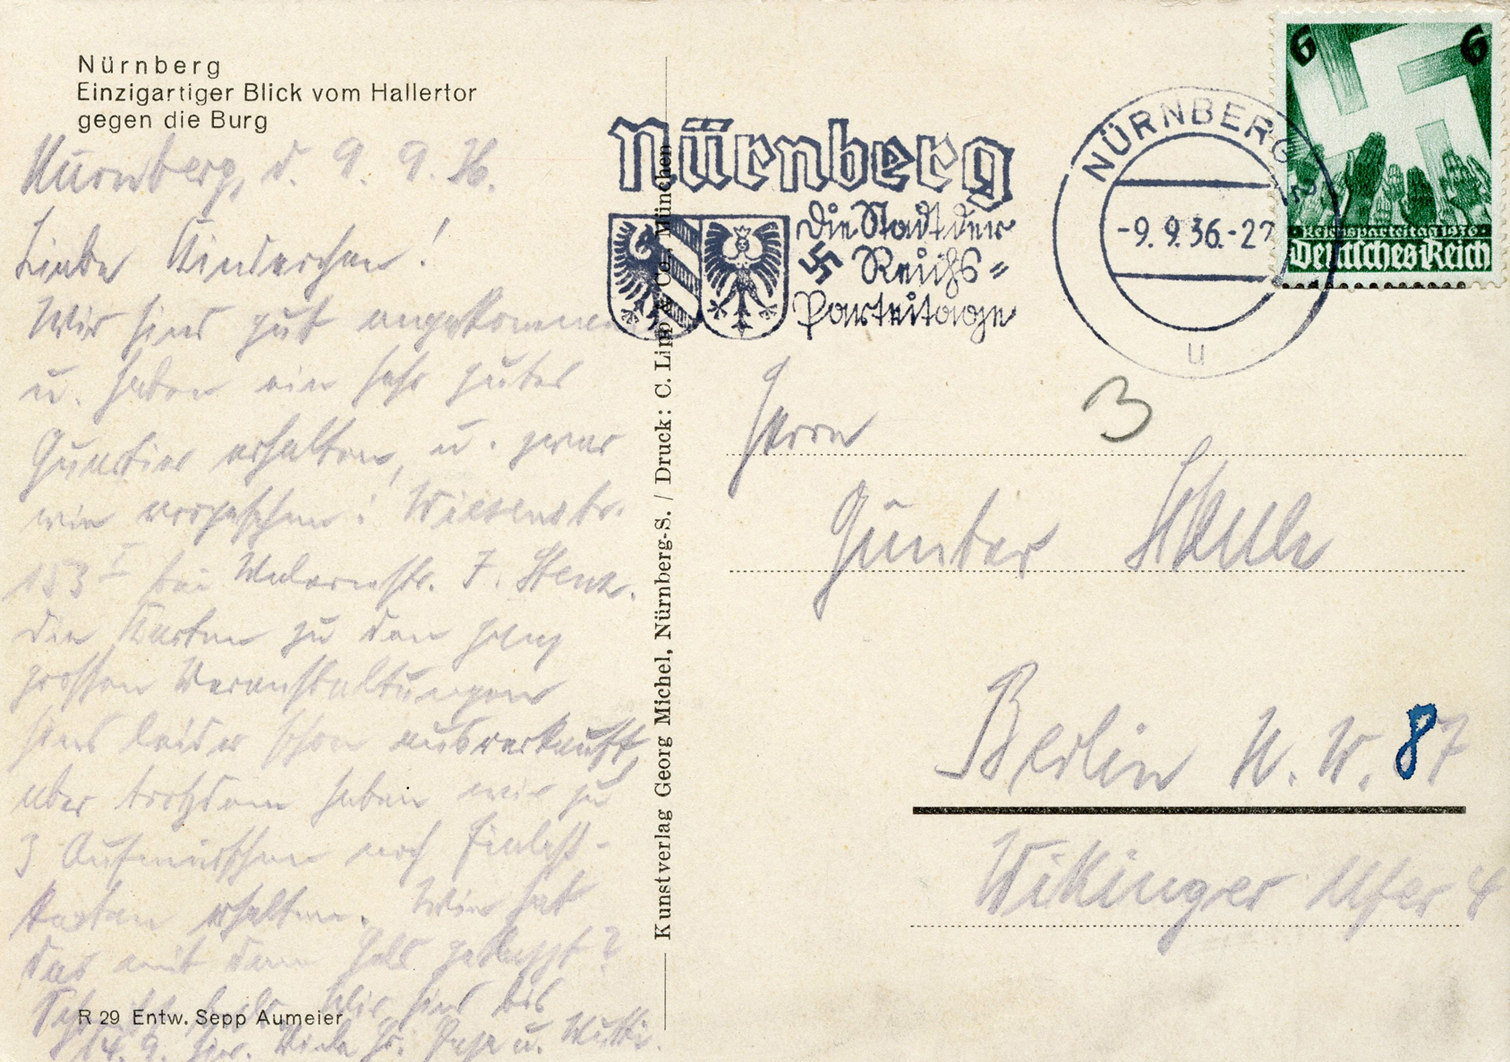 Nürnberg
Einzigartiger Blick vom Hallertor
gegen die Burg
Nürnberg, d. 9. 9. 36.
Liebe Kinderchen!
Wir sind gut angekommen
u. haben ein sehr gutes
Quartier erhalten, u. zwar
wie vorgesehen: Wiesenstr.
153 I bei
Die Karten zu den ganz
grossen Veranstaltungen
sind leider schon ausverkauft,
aber trotzdem haben wir zu
3 Aufmärschen noch Einlass-
karten erhalten. Wie hat
das mit dem Geld geklappt?
Wir sind bis
14. 9. hier. Viele Gr. Papa u. Mutti.
R 29 Entw. Sepp Aumeier
Kunstverlag Georg Michel, Nürnberg-S. / Druck: C. Lipp & Co., München
Nürnberg
Die Stadt der
Reichs-
Parteitage
NÜRNBERG 2
-9.9.36.-22
u
6 6
Reichsparteitag 1936
Deutsches Reich
3
Herrn
Günter
Berlin N. W. 87
Wikinger Ufer 4